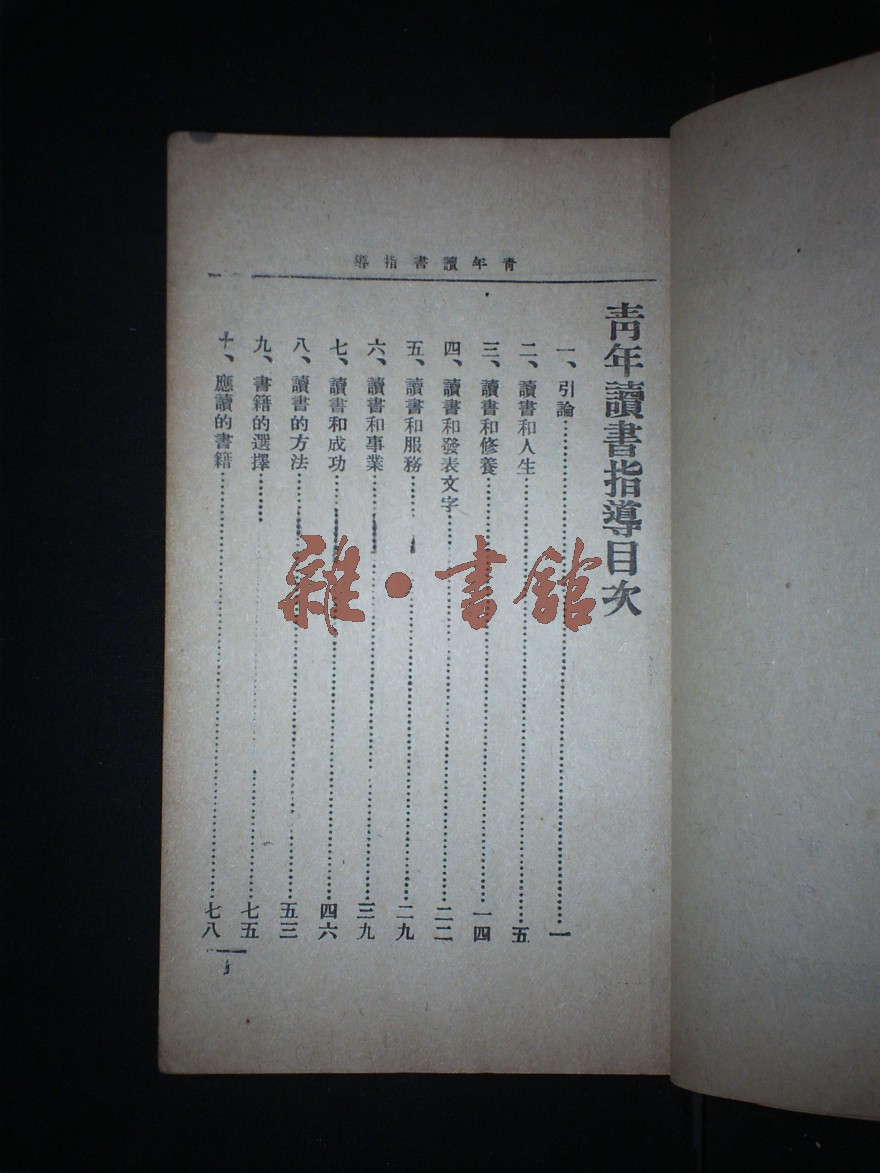 青年讀書指導
青年讀書指導目次
一、引論……一
二、讀書和人生……五
三、讀書和修養……一四
四、讀書和發表文字……二二
五、讀書和服務……二九
六、讀書和事業……三九
七、讀書和成功……四六
八、讀書的方法……五三
九、書籍的選擇……七五
十、應讀的書籍……七八
雜·書館